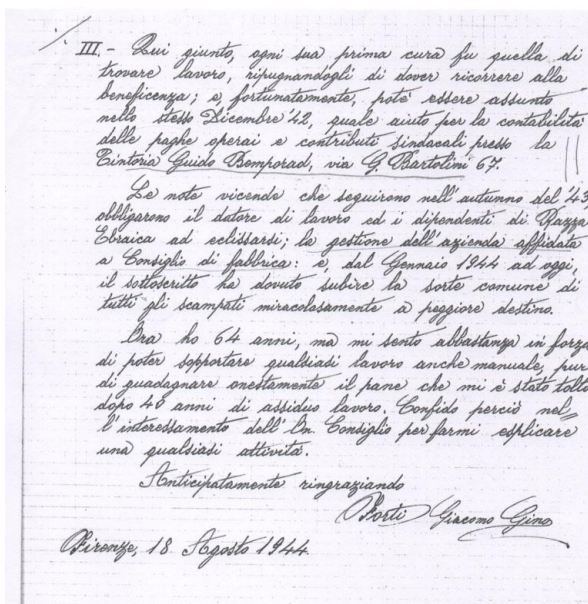 III.- Qui giunto, ogni sua prima cura fu quella di
trovare lavoro, ripugnandogli di dover ricorrere alla
beneficenza; e, fortunatamente, poté essere assunto
nello stesso Dicembre '42, quale aiuto per la contabilità
delle paghe operai e contributi sindacali presso la
Tintoria Guido Bemporad, via G. Bartolini 67.
Le note vicende che seguirono nell'autunno del '43
obbligarono il datore di lavoro ed i dipendenti di Razza
Ebraica ad eclissarsi; la gestione dell'azienda affidata
a Consiglio di fabbrica: e, dal Gennaio 1944 ad oggi,
il sottoscritto ha dovuto subire la sorte comune di
tutti gli scampati miracolosamente a peggiore destino.
Ora ho 64 anni, ma mi sento abbastanza in forza
di poter sopportare qualsiasi lavoro anche manuale, pur
di guadagnare onestamente il pane che mi è stato tolto
dopo 40 anni di assiduo lavoro. Confido perciò nel-
l'interessamento dell'On. Consiglio per farmi esplicare
una qualsiasi attività.
Anticipatamente ringraziando
Forti Giacomo Gino
Firenze, 18 Agosto 1944.